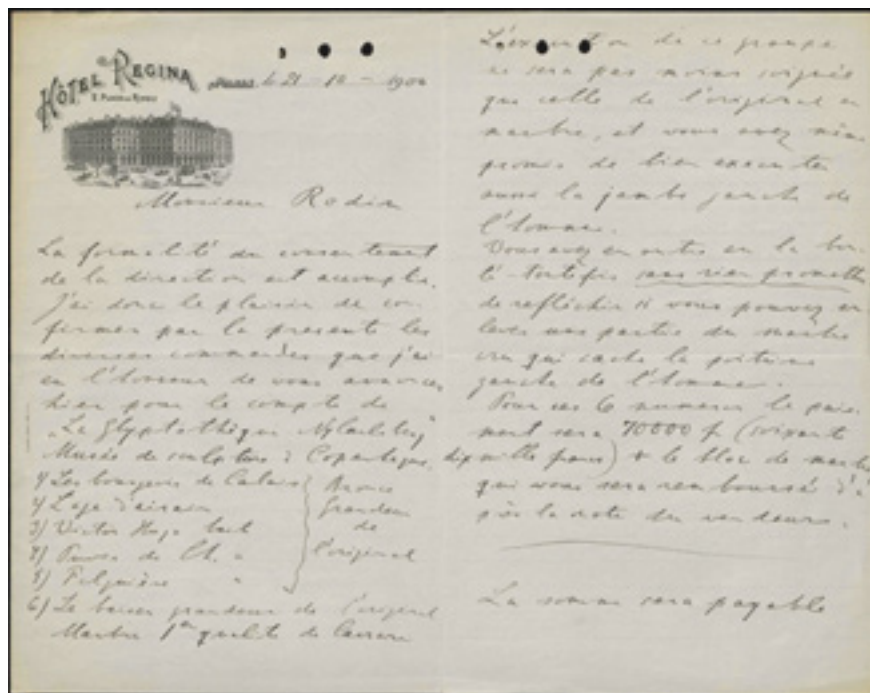 HÔTEL REGINA
2 Place de Rivoli
le 21 - 12 - 1900
Monsieur Rodin
La formalité du consentement
de la direction est accomplie.
J'ai donc le plaisir de con-
firmer par la presente les
diverses commandes que j'ai
eu l'honneur de vous annoncer
hier pour le compte de
"La Glyptothèque Ny Carlsberg"
Musée de sculpture à Copenhague.
1) Les bourgeois de Calais
2) L'age d'airain
3) Victor Hugo bust
4) Puvis de Ch. "
5) Falguière "
Bronce
Grandeur
de
l'original
6) Le baiser grandeur de l'original
Marbre 1re qualité de Carrare
L'execution de ce groupe
ne sera pas moins soignée
que celle de l'original en
marbre, et vous avez même
promis de bien executer
aussi la jambe gauche de
l'homme.
Vous avez en outre eu la bon-
té toutefois sans rien promettre
de reflêchir si vous pouvez en-
lever une partie du marbre
cru qui cache la poitrine
gauche de l'homme.
Pour ces 6 numeros le paie-
ment sera 70000 fr (soixante
dix mille francs) + le bloc de marbre
qui vous sera remboursé d'a-
près la note du vendeurs.
La somme sera payable